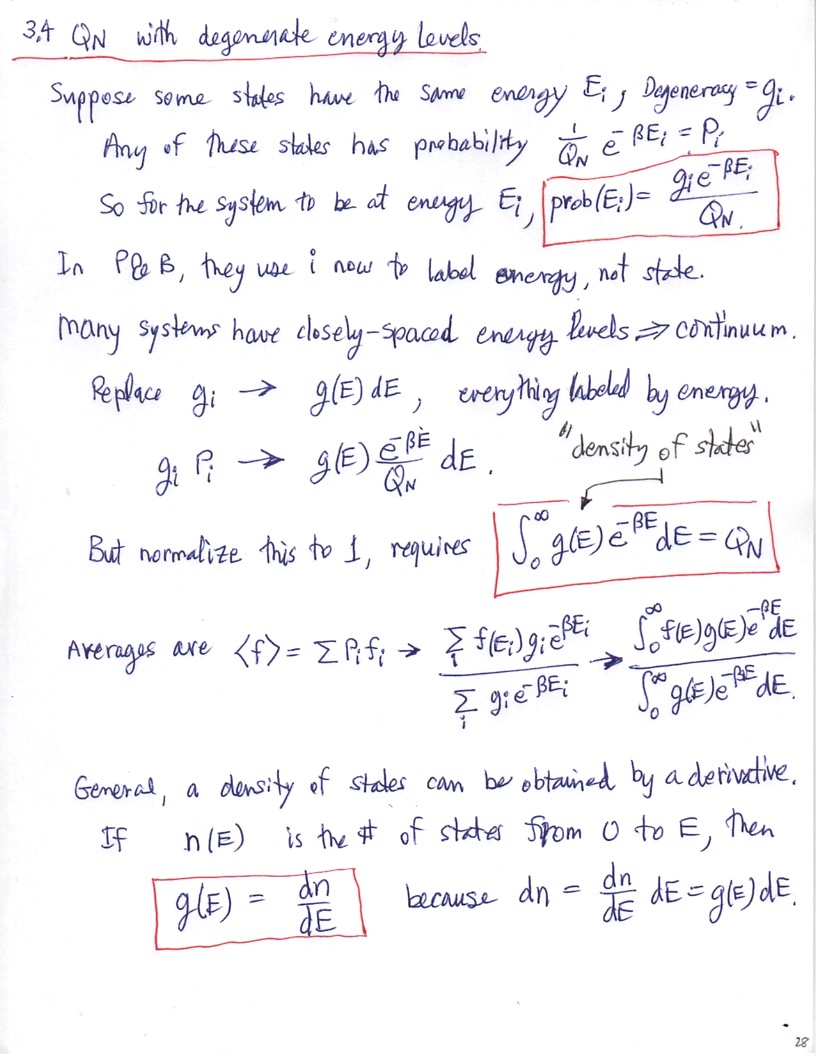 3.4 Q_N with degenerate energy levels.
Suppose some states have the same energy E_i, Degeneracy = g_i.
Any of these states has probability 1/Q_N e^{-βE_i} = P_i
So for the system to be at energy E_i, prob(E_i) = g_i e^{-βE_i} / Q_N.
In P&B, they use i now to label energy, not state.
Many systems have closely-spaced energy levels ⇒ continuum.
Replace g_i → g(E) dE, everything labeled by energy.
g_i P_i → g(E) e^{-βE}/Q_N dE. "density of states"
But normalize this to 1, requires ∫_0^∞ g(E) e^{-βE} dE = Q_N
Averages are <f> = Σ P_i f_i → Σ_i f(E_i) g_i e^{-βE_i} / Σ_i g_i e^{-βE_i} → ∫_0^∞ f(E) g(E) e^{-βE} dE / ∫_0^∞ g(E) e^{-βE} dE.
General, a density of states can be obtained by a derivative.
If n(E) is the # of states from 0 to E, then
g(E) = dn/dE because dn = dn/dE dE = g(E) dE.
28